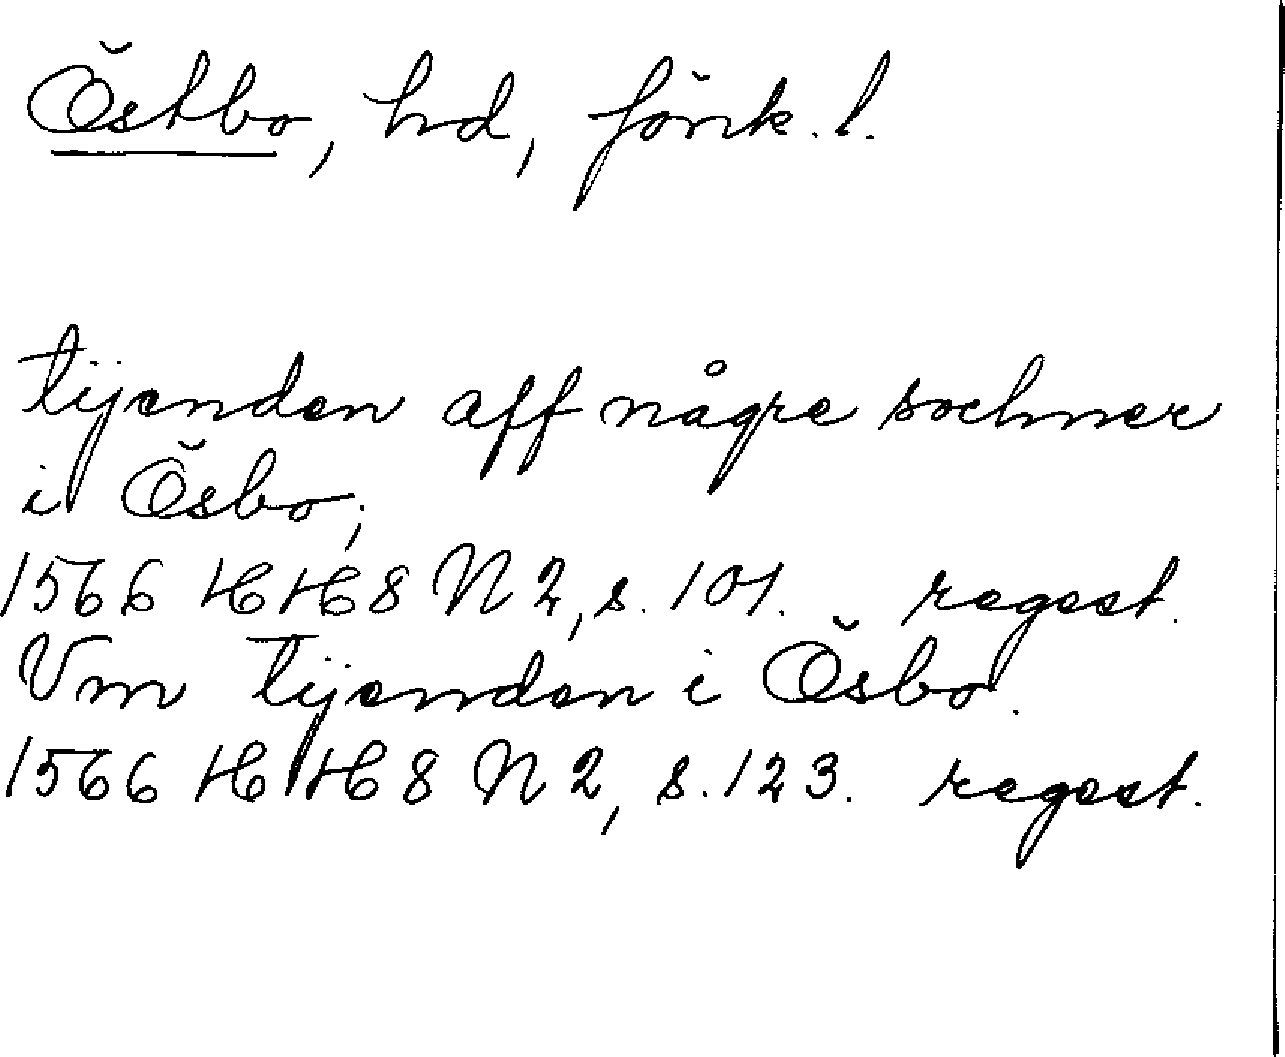 Östbo, hd, jönk. l.
tijenden aff någre sochner
i Ösbo;
1566 HH 8 N 2, s. 101. regest.
Vm tijenden i Ösbo.
1566 HH 8 N 2, s. 123. regest.